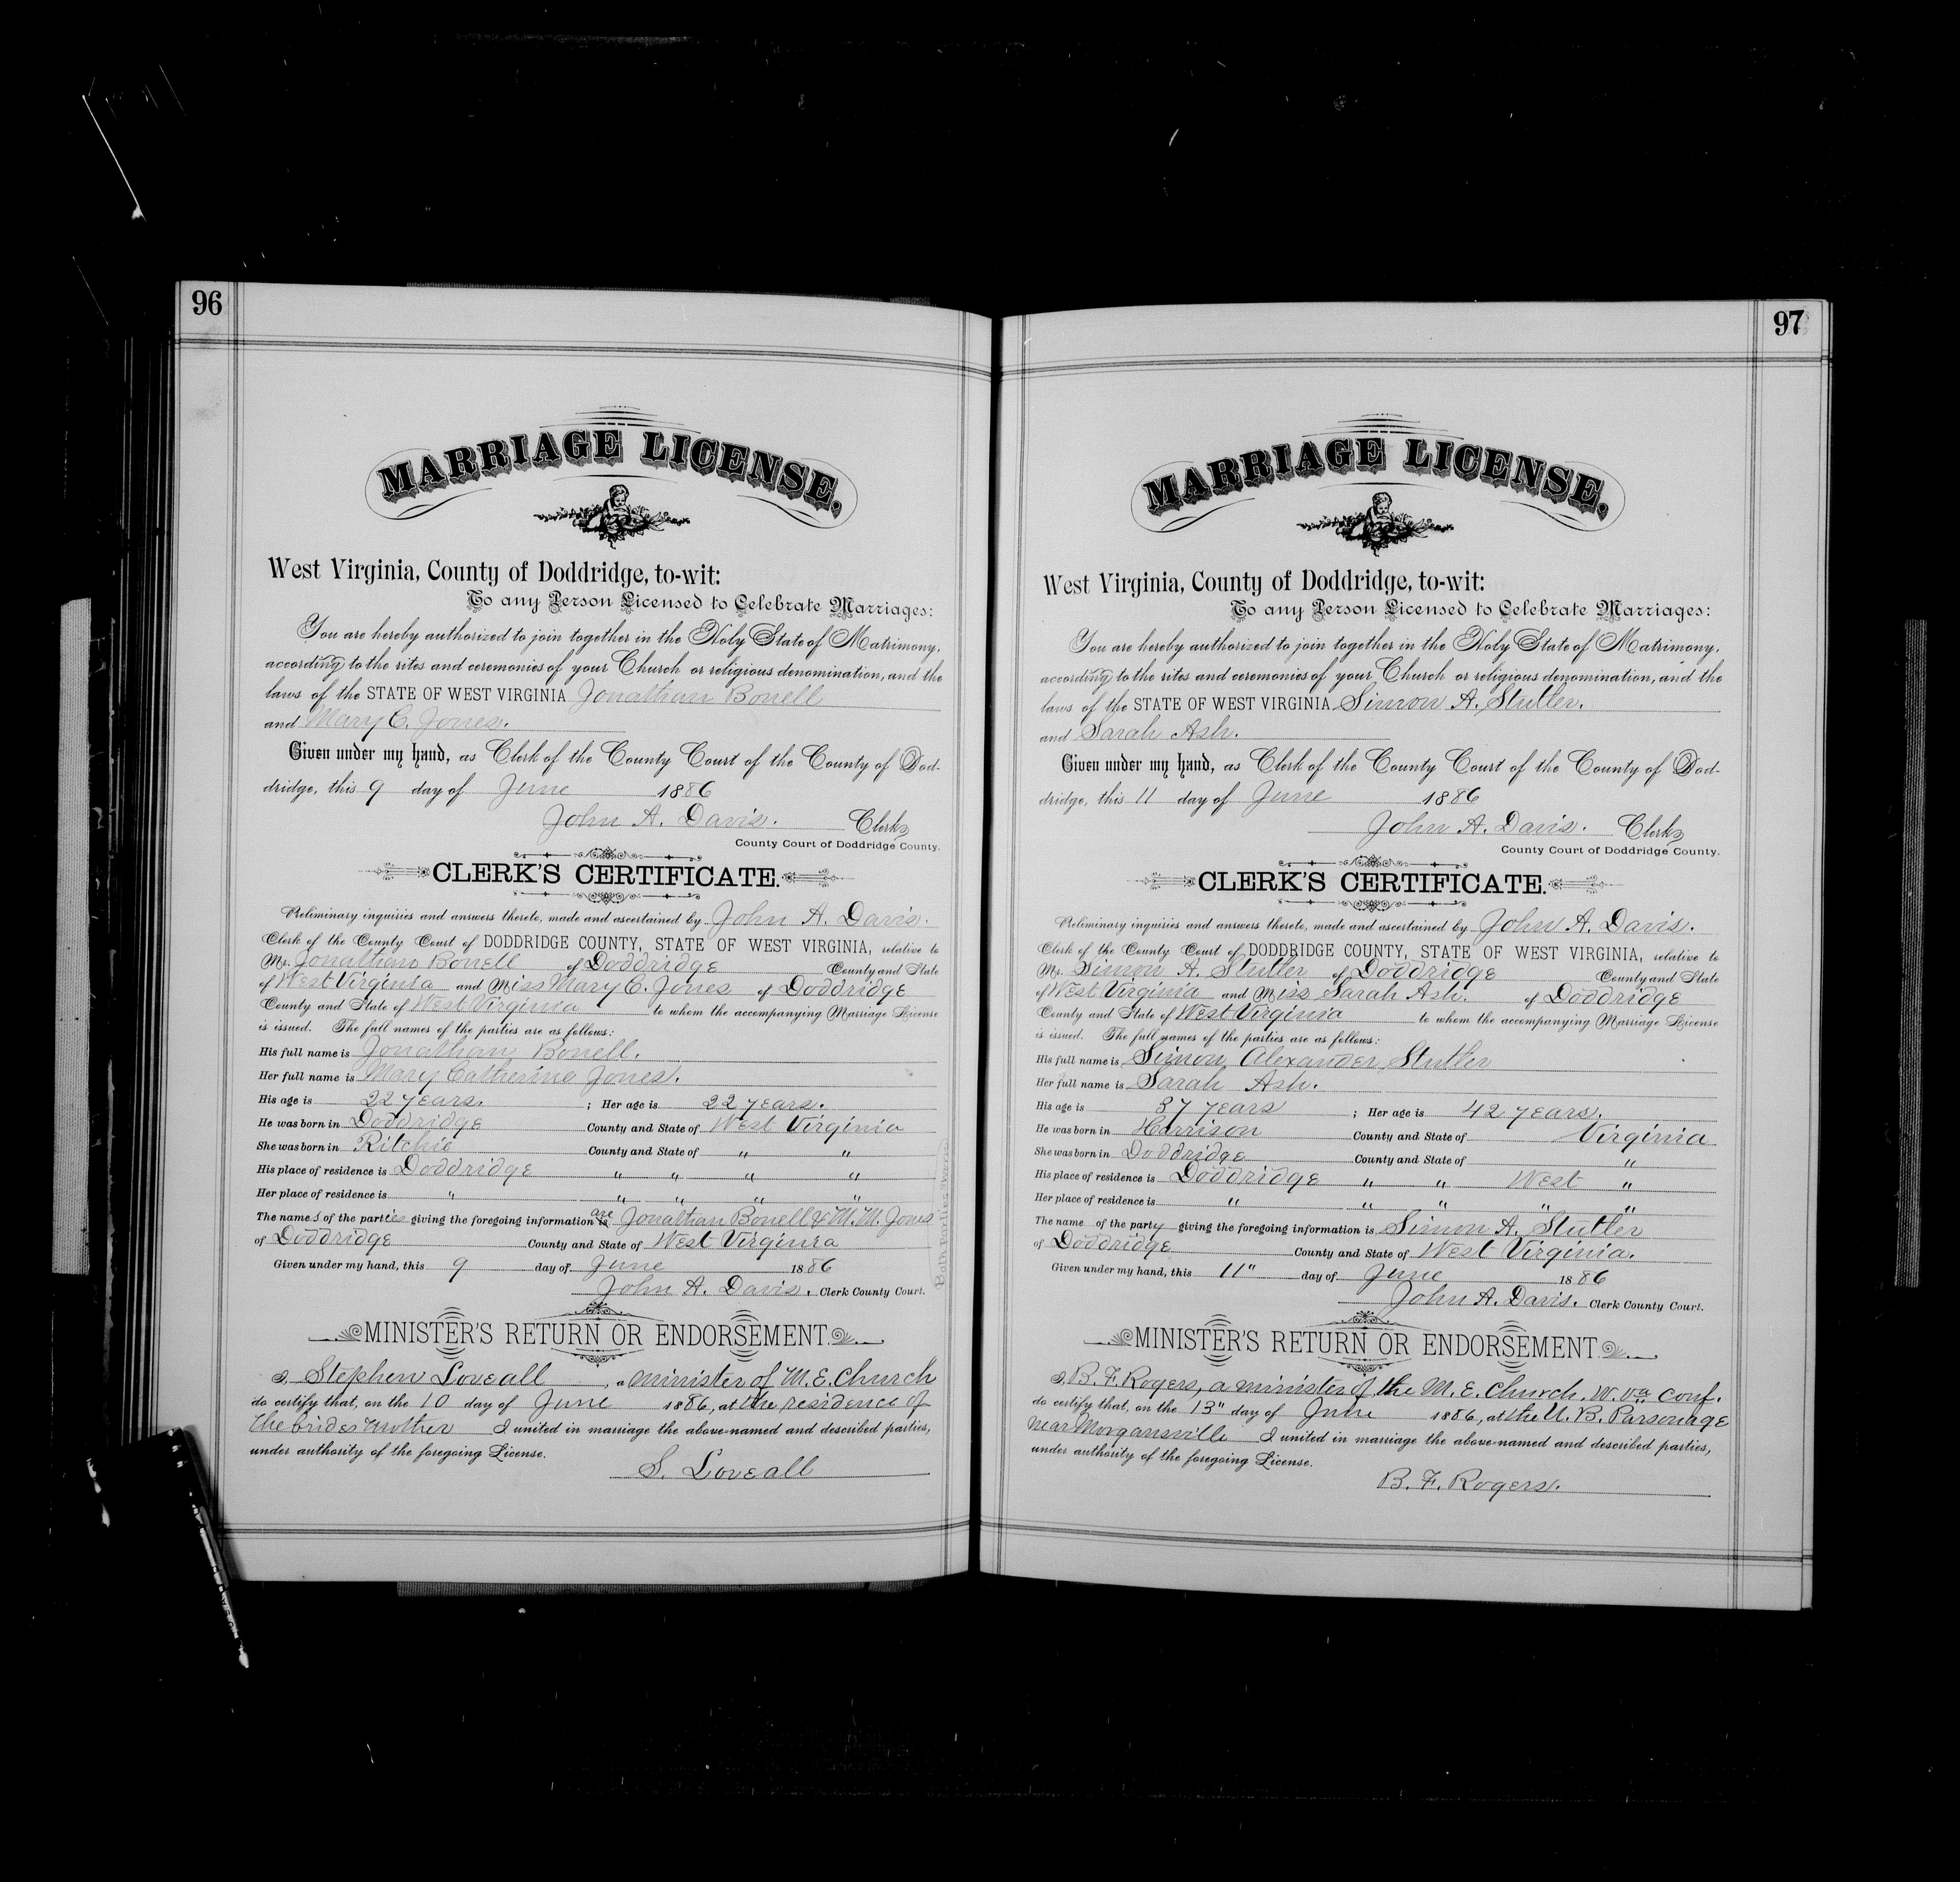 96
MARRIAGE LICENSE.
West Virginia, County of Doddridge, to-wit:
To any Person Licensed to Celebrate Marriages:
You are hereby authorized to join together in the Holy State of Matrimony,
according to the rites and ceremonies of your Church or religious denomination, and the
laws of the STATE OF WEST VIRGINIA Jonathan Bonell
and Mary C. Jones.
Given under my hand, as Clerk of the County Court of the County of Dod-
dridge, this 9 day of June 1886
John A. Davis. Clerk
County Court of Doddridge County.
CLERK'S CERTIFICATE.
Preliminary inquiries and answers thereto, made and ascertained by John A. Davis.
Clerk of the County Court of DODDRIDGE COUNTY, STATE OF WEST VIRGINIA, relative to
Mr. Jonathan Bonell of Doddridge County and State
of West Virginia and Miss Mary C. Jones of Doddridge
County and State of West Virginia to whom the accompanying Marriage License
is issued. The full names of the parties are as follows:
His full name is Jonathan Bonell.
Her full name is Mary Catherine Jones.
His age is 22 years. ; Her age is 22 years.
He was born in Doddridge County and State of West Virginia
She was born in Ritchie County and State of " "
His place of residence is Doddridge " " " "
Her place of residence is " " " " "
The names of the parties giving the foregoing information is are Jonathan Bonell & M. M. Jones
of Doddridge County and State of West Virginia
Given under my hand, this 9 day of June 1886
John A. Davis. Clerk County Court.
Both Parties
MINISTER'S RETURN OR ENDORSEMENT.
I, Stephen Loveall, a minister of M. E. Church
do certify that, on the 10 day of June 1886, at the residence of
the brides mother I united in marriage the above-named and described parties,
under authority of the foregoing License.
S. Loveall
97
MARRIAGE LICENSE.
West Virginia, County of Doddridge, to-wit:
To any Person Licensed to Celebrate Marriages:
You are hereby authorized to join together in the Holy State of Matrimony,
according to the rites and ceremonies of your Church or religious denomination, and the
laws of the STATE OF WEST VIRGINIA Simon A. Stutler.
and Sarah Ash.
Given under my hand, as Clerk of the County Court of the County of Dod-
dridge, this 11 day of June 1886
John A. Davis. Clerk
County Court of Doddridge County.
CLERK'S CERTIFICATE.
Preliminary inquiries and answers thereto, made and ascertained by John A. Davis.
Clerk of the County Court of DODDRIDGE COUNTY, STATE OF WEST VIRGINIA, relative to
Mr. Simon A. Stutler of Doddridge County and State
of West Virginia and Miss Sarah Ash. of Doddridge
County and State of West Virginia to whom the accompanying Marriage License
is issued. The full names of the parties are as follows:
His full name is Simon Alexander Stutler
Her full name is Sarah Ash.
His age is 37 years ; Her age is 42 years.
He was born in Harrison County and State of Virginia
She was born in Doddridge County and State of "
His place of residence is Doddridge " " West "
Her place of residence is " " " " "
The name of the party giving the foregoing information is Simon A. Stutler
of Doddridge County and State of West Virginia.
Given under my hand, this 11" day of June 1886
John A. Davis. Clerk County Court.
MINISTER'S RETURN OR ENDORSEMENT.
I, B. F. Rogers, a minister of the M. E. Church, W. Va Conf.
do certify that, on the 13" day of June 1886, at the U. B. Parsonage
near Morgansville I united in marriage the above-named and described parties,
under authority of the foregoing License.
B. F. Rogers.